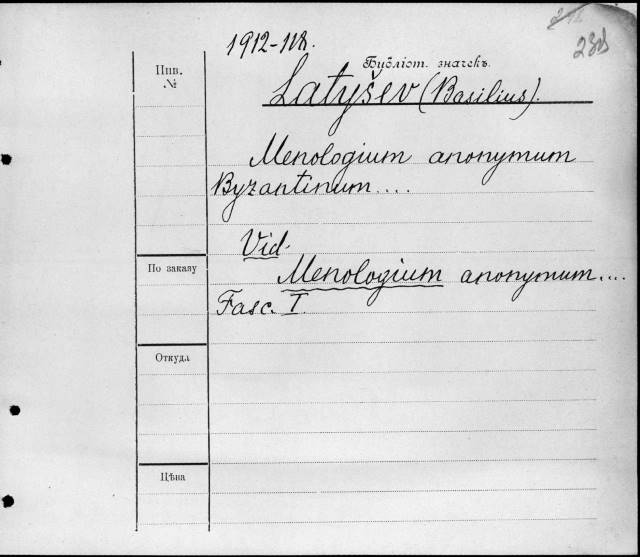 1912-118.
238
Инв. №
Библіот. значекъ.
Latyšev (Basilius).
Menologium anonymum
Byzantinum....
Vid.
По заказу
Menologium anonymum....
Fasc. I.
Откуда
Цѣна